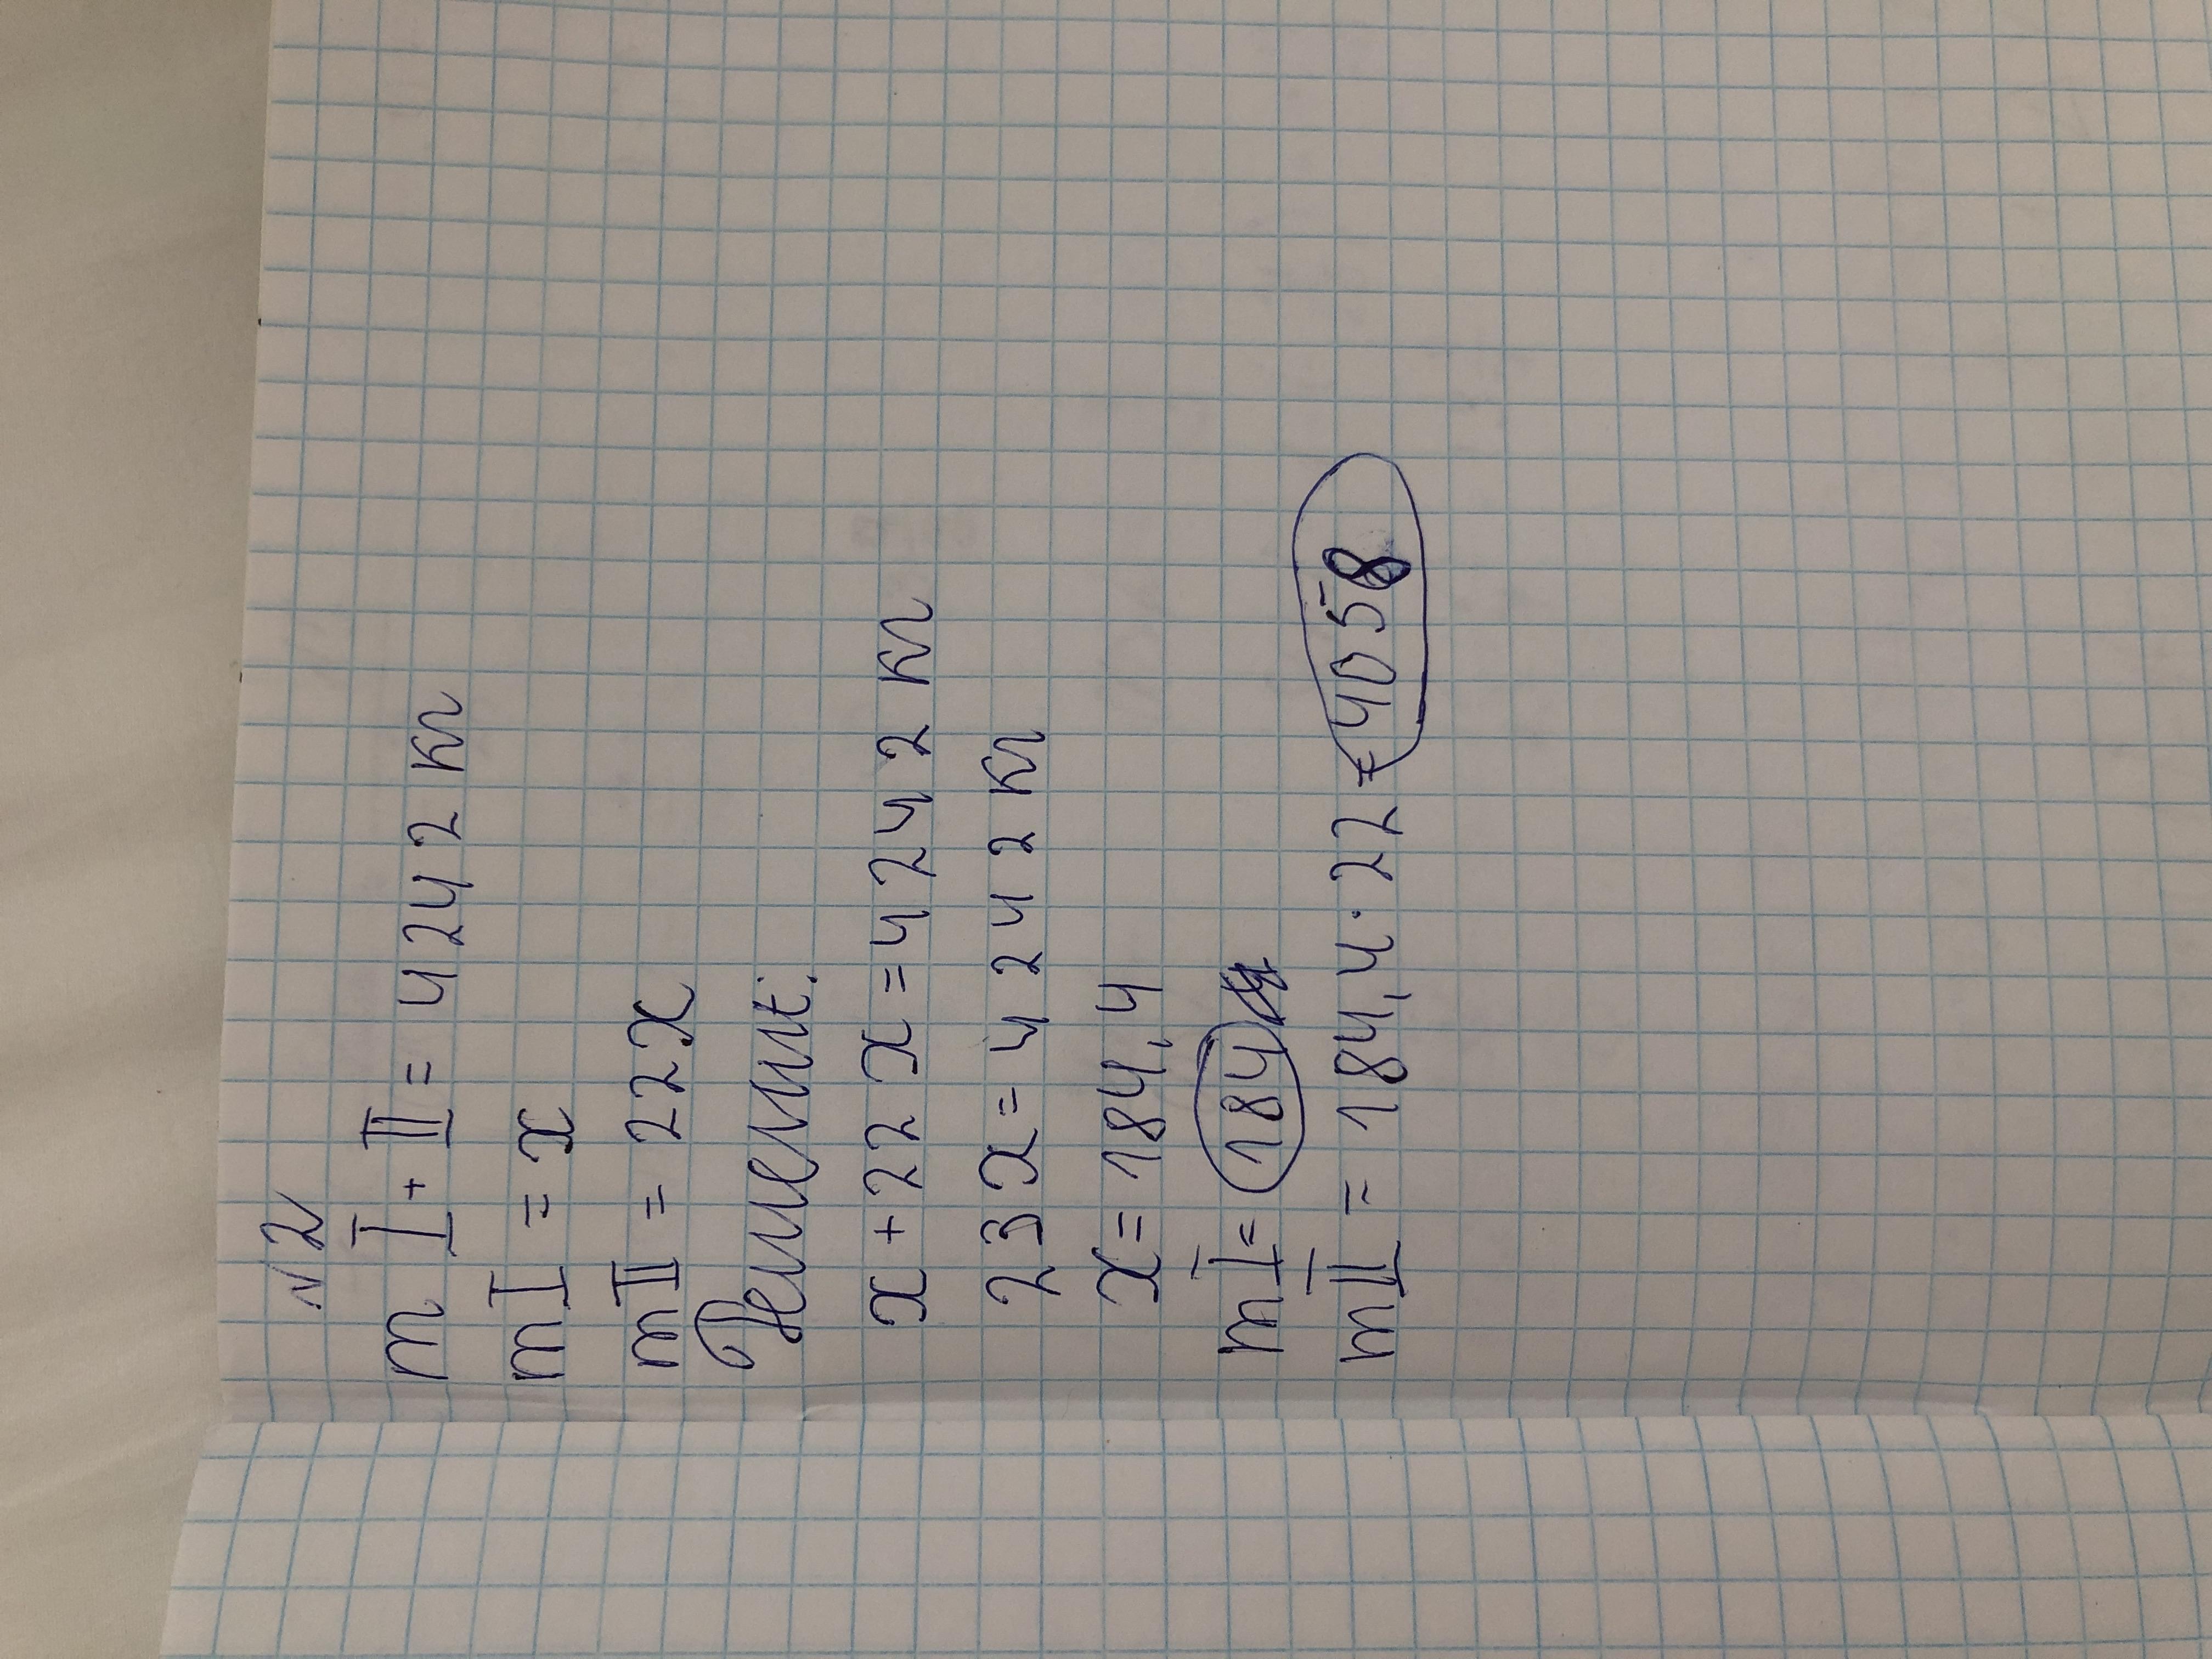 №2
m I + II = 4242 кг
m I = x
m II = 22x
Решение:
x + 22x = 4242 кг
23x = 4242 кг
x = 184,4
m I = 184
m II = 184,4 · 22 = 4058